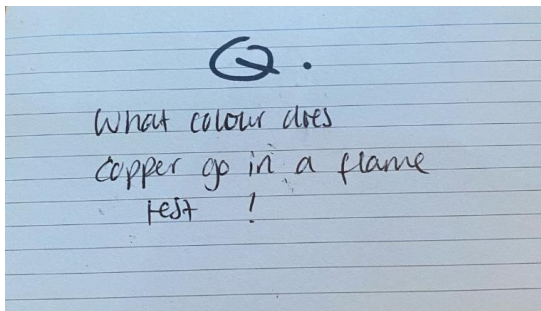 Q.
What colour does
copper go in a flame
test ?